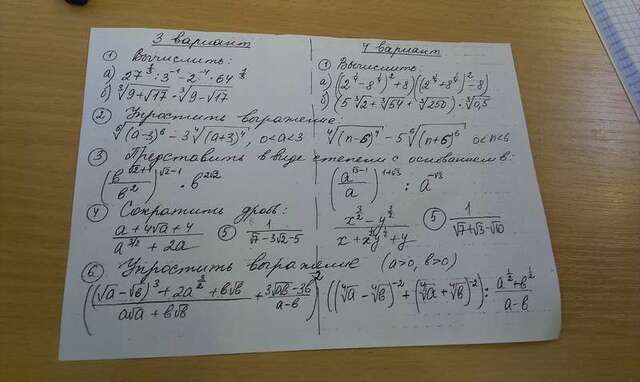 3 вариант
① Вычислить:
а) 27^(2/3) : 3^(-1) - 2^(-4) · 64^(2/3)
б) ∛(9+√17) · ∛(9-√17)
② Упростить выражение:
⁶√((a-3)⁶) - 3 ⁴√((a+3)⁴), 0<a<3
③ Представить в виде степени с основанием в:
(в^(√2+1) / в²)^(√2-1) · в^(2√2)
④ Сократить дробь:
(a+4√a+4) / (a^(3/2) + 2a)
⑤ 1 / (√7-3√2-5)
⑥ Упростить выражение (a>0, в>0)
(((√a-√в)³ + 2a^(3/2) + в√в) / (a√a + в√в) + (3√aв-3в) / (a-в))²
4 вариант
① Вычислить:
а) (2^(1/4) - 8^(1/4))² + 8)((2^(1/4) + 8^(1/4))² - 8)
б) (5 ∛2 + ∛54 + ∛250) · ∛0,5
⁴√((n-6)⁴) - 5 ⁶√((n+6)⁶) 0<n<6
(a^(√3-1) / a)^(1+√3) : a^(-√3)
(x^(3/2) - y^(3/2)) / (x + x^(1/2)y^(1/2) + y)
⑤ 1 / (√7+√3-√10)
((⁴√a - ⁴√в)^(-2) + (⁴√a + ⁴√в)^(-2)) : (a^(1/2) + в^(1/2)) / (a-в)